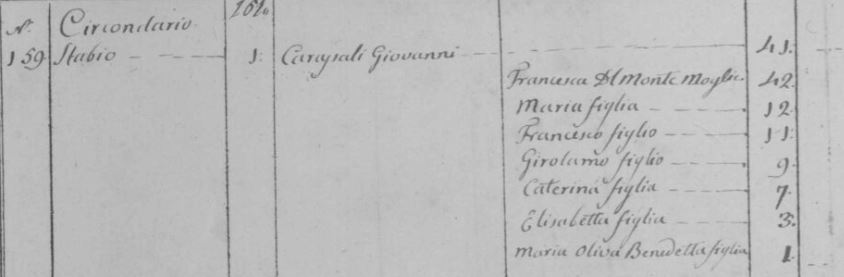 N.º Circondario
159 Stabio 1. Giovanni 41.
Francesca Del Monte Moglie 42.
Maria figlia 12.
Francesco figlio 11.
Girolamo figlio 9.
Caterina figlia 7.
Elisabetta figlia 3.
Maria Oliva Benedetta figlia 1.